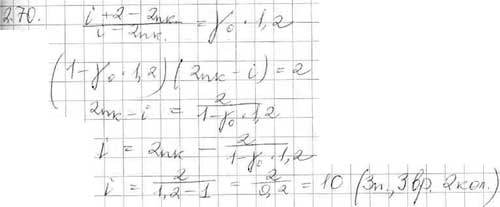 2.70. (i + 2 - 2nк)/(i - 2nк.) = γ₀ · 1,2
(1 - γ₀ · 1,2)(2nк - i) = 2
2nк - i = 2/(1 - γ₀ · 1,2)
i = 2nк - 2/(1 - γ₀ · 1,2)
i = 2/(1,2 - 1) = 2/0,2 = 10 (3п., 3вр. 2кол.)